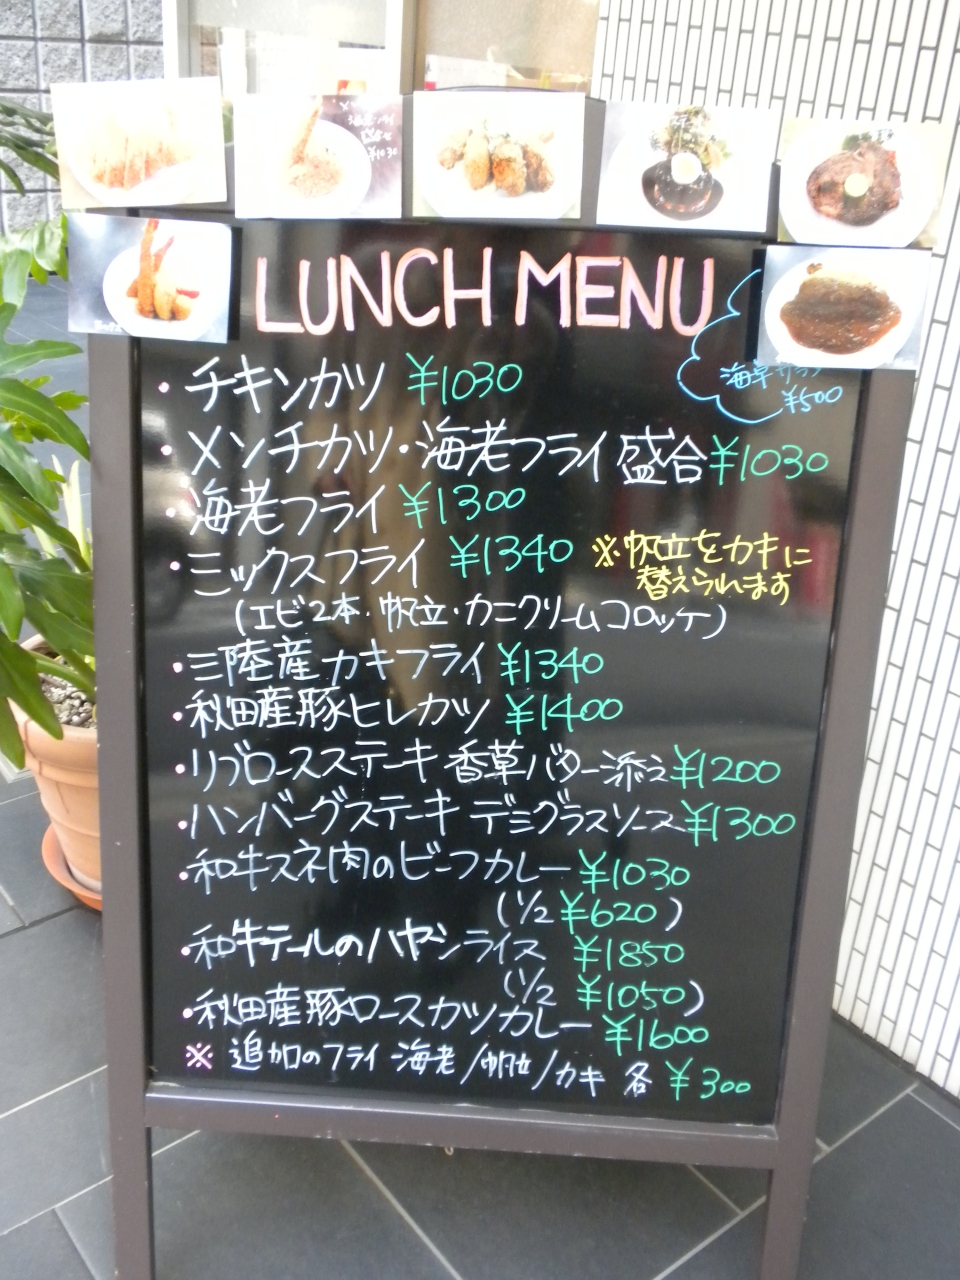 LUNCH MENU
海草サラダ
¥500
・チキンカツ ¥1030
・メンチカツ・海老フライ盛合 ¥1030
・海老フライ ¥1300
・ミックスフライ ¥1340 ※帆立をカキに
替えられます
(エビ2本・帆立・カニクリームコロッケ)
・三陸産カキフライ ¥1340
・秋田産豚ヒレカツ ¥1400
・リブロースステーキ 香草バター添え ¥1200
・ハンバーグステーキ デミグラスソース ¥1300
・和牛スネ肉のビーフカレー ¥1030
(1/2 ¥620)
・和牛テールのハヤシライス ¥1850
(1/2 ¥1050)
・秋田産豚ロースカツカレー ¥1600
※ 追加のフライ 海老/帆立/カキ 各 ¥300